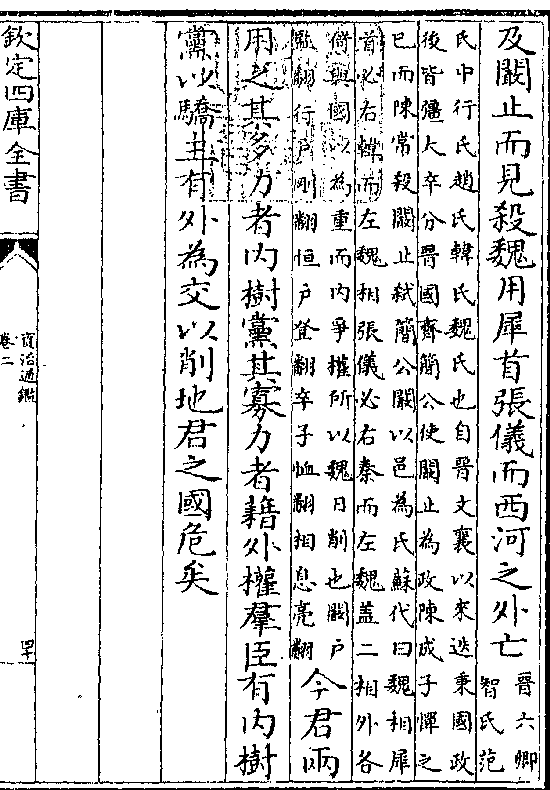 及闞止而見殺魏用犀首張儀而西河之外亡晉六卿
智氏范
氏中行氏趙氏韓氏魏氏也自晉文襄以來迭秉國政
後皆彊大卒分晉國齊簡公使闞止為政陳成子憚之
已而陳常殺闞止弒簡公闞以邑為氏蘇代曰魏相犀
首必右韓而左魏相張儀必右秦而左魏盖二相外各
倚與國以為重而内爭權所以魏日削也闞户
監翻行户剛翻恒户登翻卒子恤翻相息亮翻
今君兩
用之其多力者内樹黨其寡力者藉外權羣臣有内樹
黨以驕主有外為交以削地君之國危矣
欽定四庫全書
資治通鑑
卷二